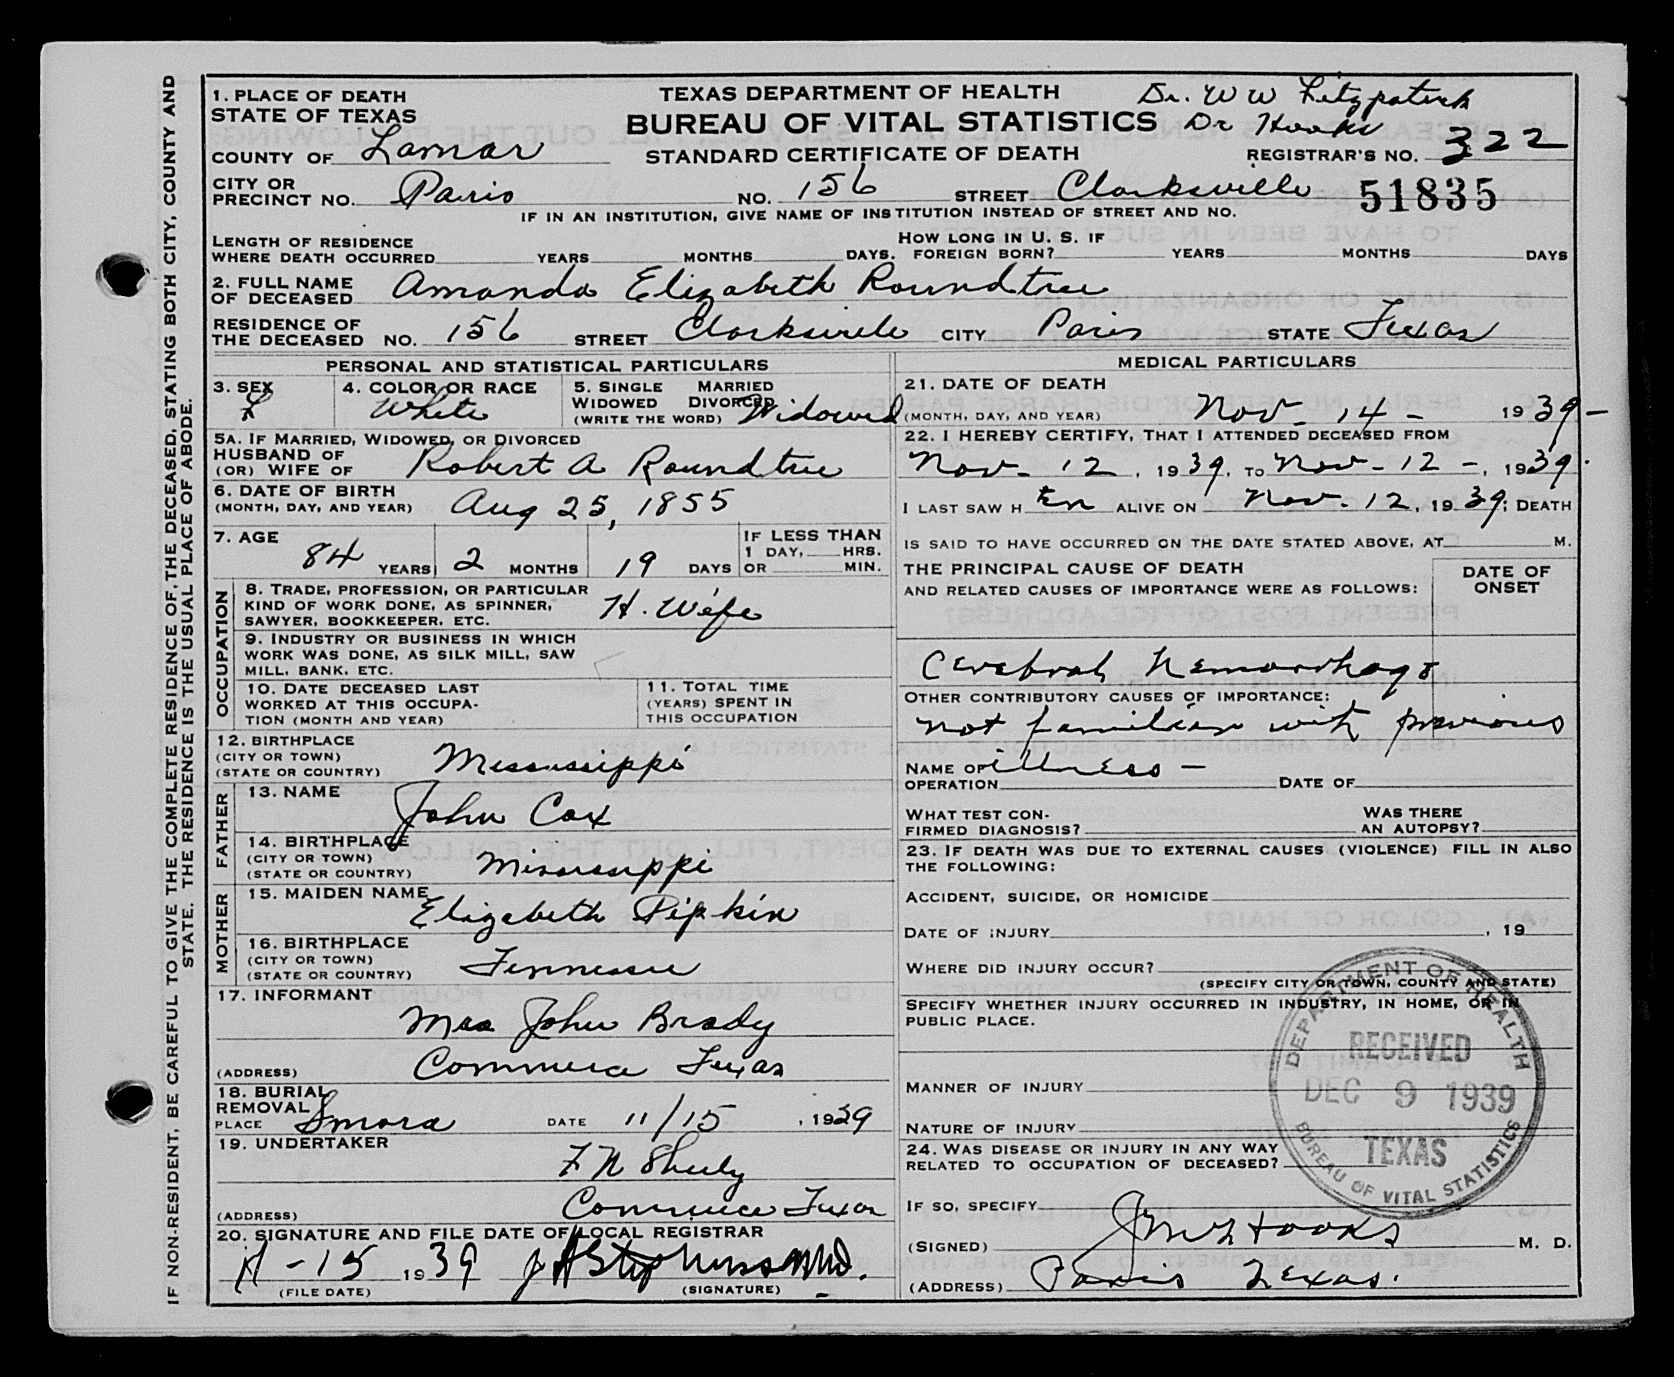 IF NON-RESIDENT, BE CAREFUL TO GIVE THE COMPLETE RESIDENCE OF THE DECEASED, STATING BOTH CITY, COUNTY AND
STATE. THE RESIDENCE IS THE USUAL PLACE OF ABODE.
1. PLACE OF DEATH
STATE OF TEXAS
TEXAS DEPARTMENT OF HEALTH Dr. W W Fitzpatrick
BUREAU OF VITAL STATISTICS Dr Hooks
COUNTY OF Lamar STANDARD CERTIFICATE OF DEATH REGISTRAR'S NO. 322
CITY OR
PRECINCT NO. Paris NO. 156 STREET Clarksville 51835
IF IN AN INSTITUTION, GIVE NAME OF INSTITUTION INSTEAD OF STREET AND NO.
LENGTH OF RESIDENCE
WHERE DEATH OCCURRED YEARS MONTHS DAYS.
HOW LONG IN U. S. IF
FOREIGN BORN? YEARS MONTHS DAYS
2. FULL NAME
OF DECEASED Amanda Elizabeth Roundtree
RESIDENCE OF
THE DECEASED NO. 156 STREET Clarksville CITY Paris STATE Texas
PERSONAL AND STATISTICAL PARTICULARS
3. SEX F
4. COLOR OR RACE White
5. SINGLE MARRIED
WIDOWED DIVORCED
(WRITE THE WORD) Widowed
5A. IF MARRIED, WIDOWED, OR DIVORCED
HUSBAND OF
(OR) WIFE OF Robert A Roundtree
6. DATE OF BIRTH
(MONTH, DAY, AND YEAR) Aug 25, 1855
7. AGE
84 YEARS 2 MONTHS 19 DAYS
IF LESS THAN
1 DAY, HRS.
OR MIN.
OCCUPATION
8. TRADE, PROFESSION, OR PARTICULAR
KIND OF WORK DONE, AS SPINNER,
SAWYER, BOOKKEEPER, ETC. H. Wife
9. INDUSTRY OR BUSINESS IN WHICH
WORK WAS DONE, AS SILK MILL, SAW
MILL, BANK, ETC.
10. DATE DECEASED LAST
WORKED AT THIS OCCUPA-
TION (MONTH AND YEAR)
11. TOTAL TIME
(YEARS) SPENT IN
THIS OCCUPATION
12. BIRTHPLACE
(CITY OR TOWN)
(STATE OR COUNTRY) Mississippi
FATHER
13. NAME John Cox
14. BIRTHPLACE
(CITY OR TOWN)
(STATE OR COUNTRY) Mississippi
MOTHER
15. MAIDEN NAME Elizabeth Pipkin
16. BIRTHPLACE
(CITY OR TOWN)
(STATE OR COUNTRY) Tennessee
17. INFORMANT
Mrs John Brady
(ADDRESS) Commerce Texas
18. BURIAL
REMOVAL
PLACE DATE 11/15, 1939
19. UNDERTAKER
(ADDRESS) Commerce Texas
20. SIGNATURE AND FILE DATE OF LOCAL REGISTRAR
11-15 1939 J H Stephenson MD.
(FILE DATE) (SIGNATURE)
MEDICAL PARTICULARS
21. DATE OF DEATH
(MONTH, DAY, AND YEAR) Nov. 14 - 1939 -
22. I HEREBY CERTIFY, THAT I ATTENDED DECEASED FROM
Nov. 12, 1939, TO Nov - 12 -, 1939.
I LAST SAW H er ALIVE ON Nov. 12, 1939; DEATH
IS SAID TO HAVE OCCURRED ON THE DATE STATED ABOVE, AT M.
THE PRINCIPAL CAUSE OF DEATH
AND RELATED CAUSES OF IMPORTANCE WERE AS FOLLOWS:
DATE OF
ONSET
Cerebral Hemorrhage
OTHER CONTRIBUTORY CAUSES OF IMPORTANCE:
not familiar with previous
illness -
NAME OF
OPERATION DATE OF
WHAT TEST CON-
FIRMED DIAGNOSIS?
WAS THERE
AN AUTOPSY?
23. IF DEATH WAS DUE TO EXTERNAL CAUSES (VIOLENCE) FILL IN ALSO
THE FOLLOWING:
ACCIDENT, SUICIDE, OR HOMICIDE
DATE OF INJURY , 19
WHERE DID INJURY OCCUR?
(SPECIFY CITY OR TOWN, COUNTY AND STATE)
SPECIFY WHETHER INJURY OCCURRED IN INDUSTRY, IN HOME, OR IN
PUBLIC PLACE.
MANNER OF INJURY
NATURE OF INJURY
24. WAS DISEASE OR INJURY IN ANY WAY
RELATED TO OCCUPATION OF DECEASED?
IF SO, SPECIFY
(SIGNED) Hooks M. D.
(ADDRESS) Paris Texas.
DEPARTMENT OF HEALTH
RECEIVED
DEC 9 1939
TEXAS
BUREAU OF VITAL STATISTICS